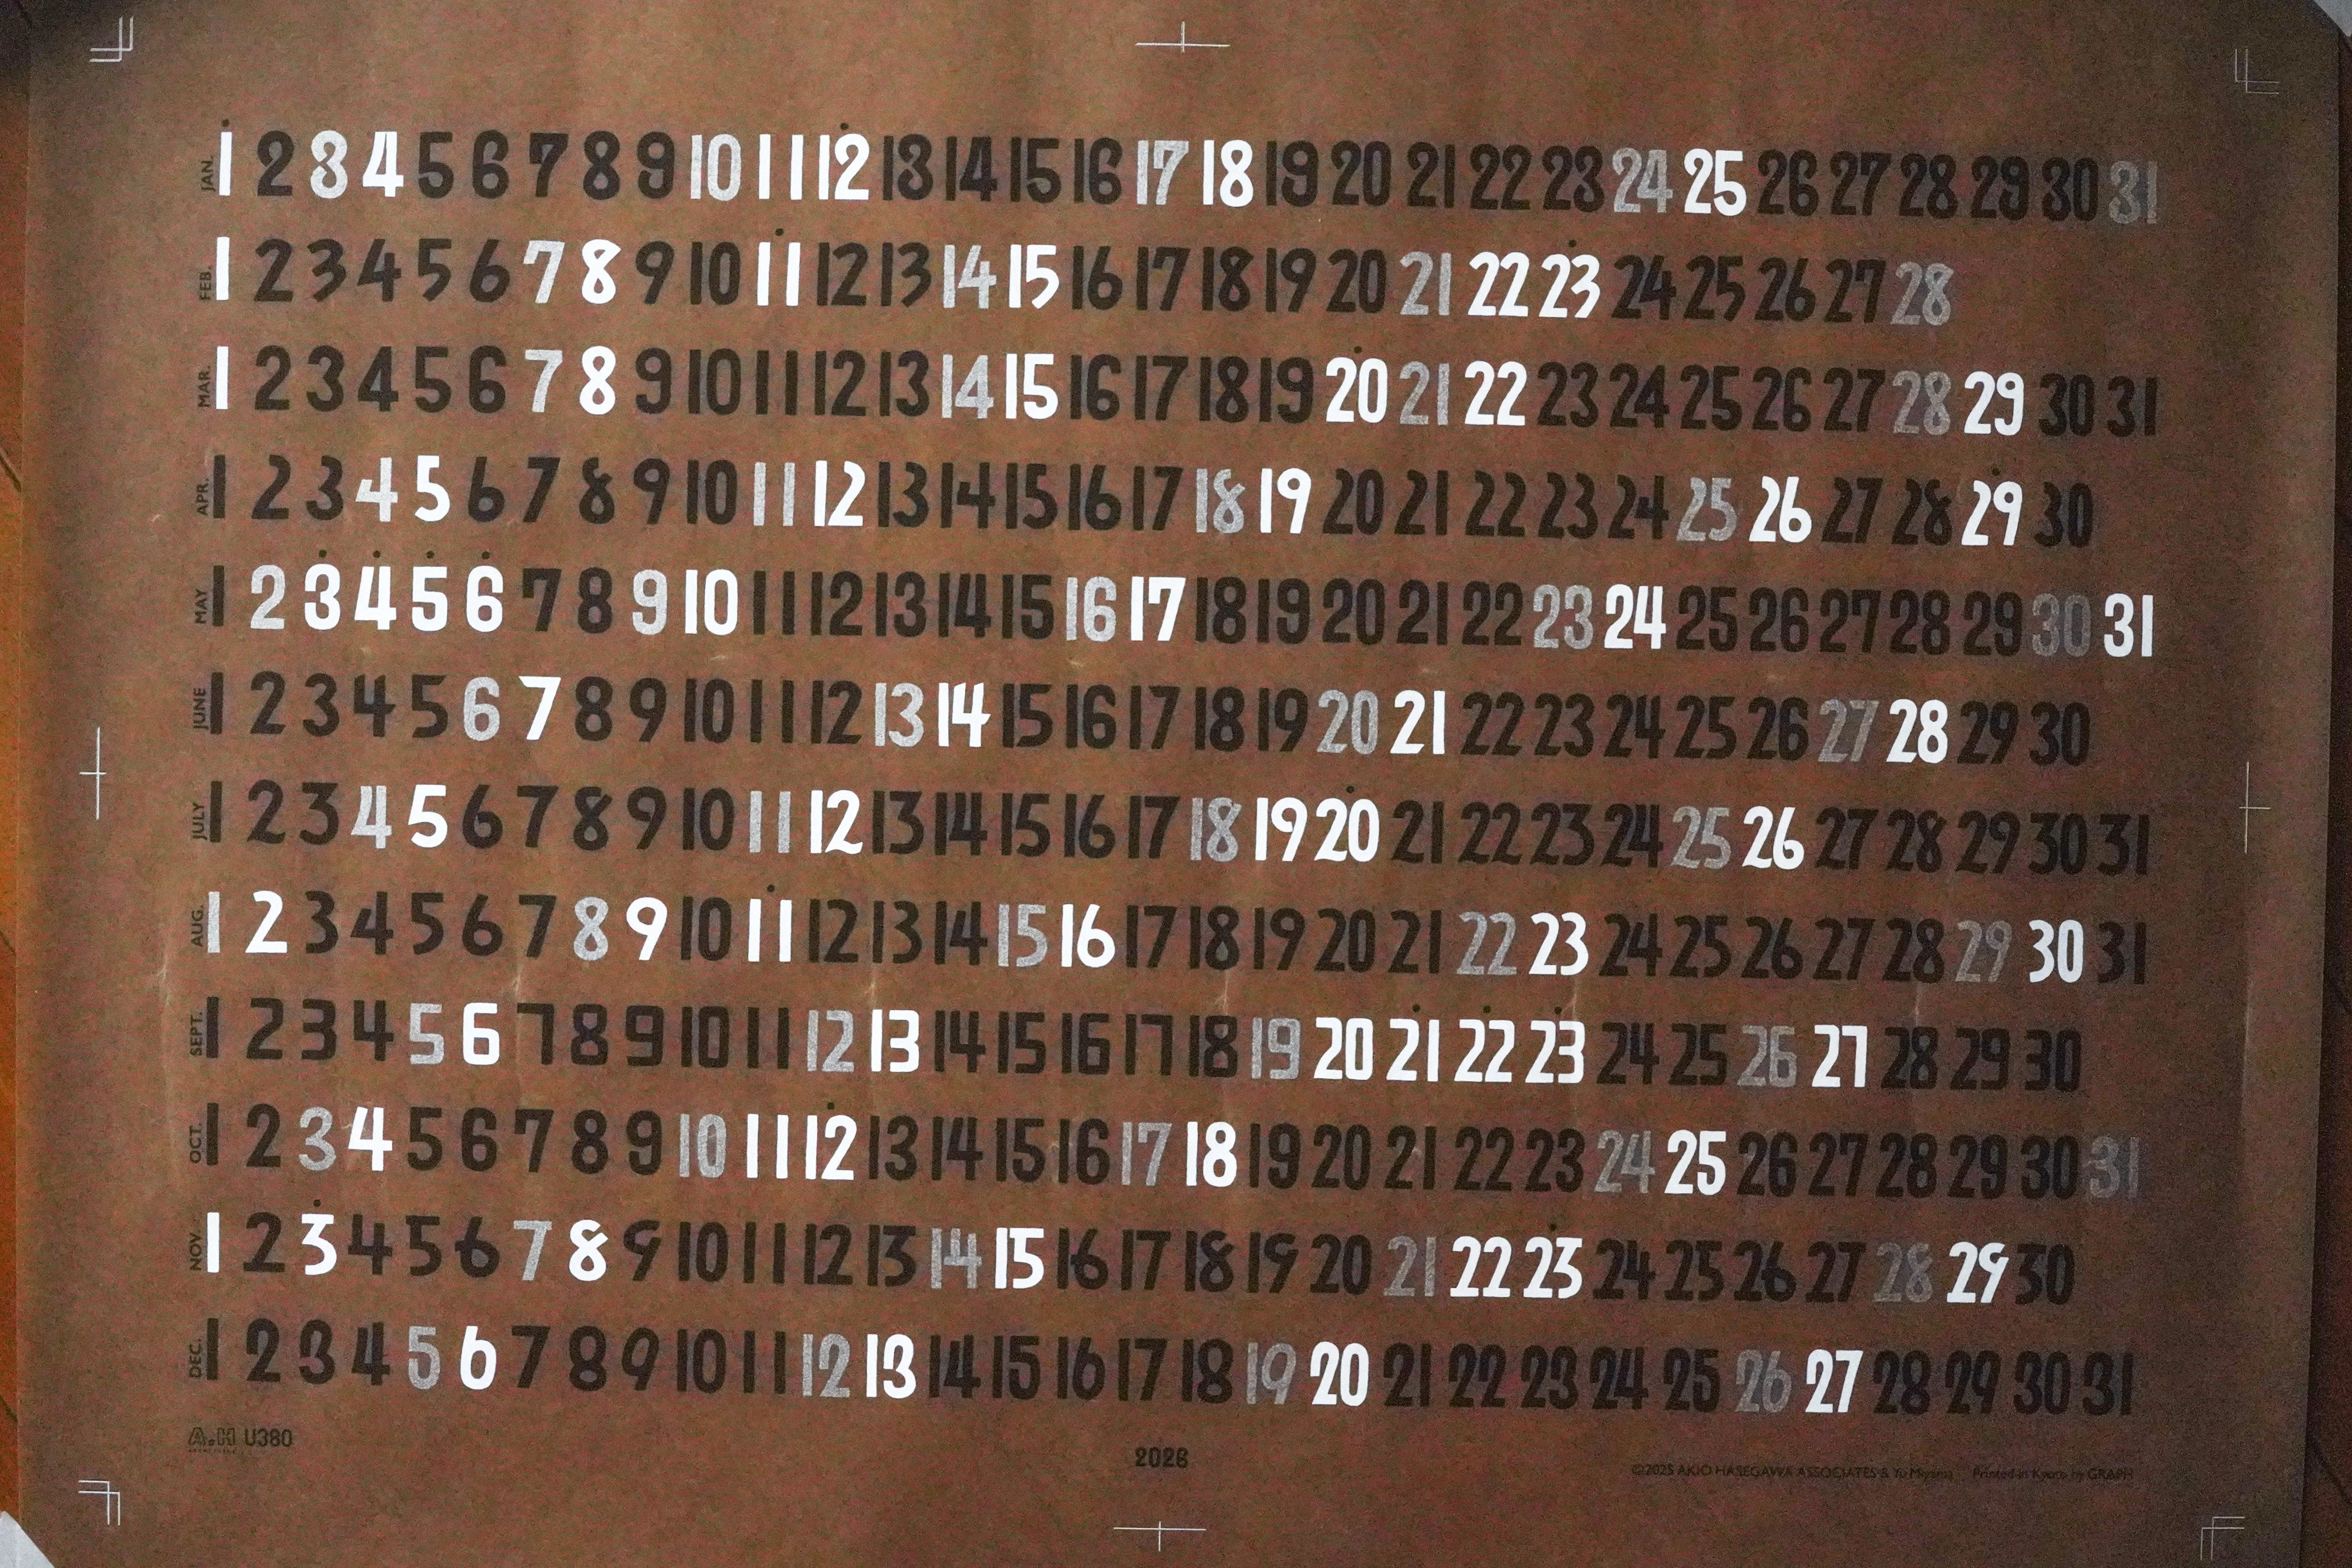 JAN. 1 2 3 4 5 6 7 8 9 10 11 12 13 14 15 16 17 18 19 20 21 22 23 24 25 26 27 28 29 30 31
FEB. 1 2 3 4 5 6 7 8 9 10 11 12 13 14 15 16 17 18 19 20 21 22 23 24 25 26 27 28
MAR. 1 2 3 4 5 6 7 8 9 10 11 12 13 14 15 16 17 18 19 20 21 22 23 24 25 26 27 28 29 30 31
APR. 1 2 3 4 5 6 7 8 9 10 11 12 13 14 15 16 17 18 19 20 21 22 23 24 25 26 27 28 29 30
MAY 1 2 3 4 5 6 7 8 9 10 11 12 13 14 15 16 17 18 19 20 21 22 23 24 25 26 27 28 29 30 31
JUNE 1 2 3 4 5 6 7 8 9 10 11 12 13 14 15 16 17 18 19 20 21 22 23 24 25 26 27 28 29 30
JULY 1 2 3 4 5 6 7 8 9 10 11 12 13 14 15 16 17 18 19 20 21 22 23 24 25 26 27 28 29 30 31
AUG. 1 2 3 4 5 6 7 8 9 10 11 12 13 14 15 16 17 18 19 20 21 22 23 24 25 26 27 28 29 30 31
SEPT. 1 2 3 4 5 6 7 8 9 10 11 12 13 14 15 16 17 18 19 20 21 22 23 24 25 26 27 28 29 30
OCT. 1 2 3 4 5 6 7 8 9 10 11 12 13 14 15 16 17 18 19 20 21 22 23 24 25 26 27 28 29 30 31
NOV. 1 2 3 4 5 6 7 8 9 10 11 12 13 14 15 16 17 18 19 20 21 22 23 24 25 26 27 28 29 30
DEC. 1 2 3 4 5 6 7 8 9 10 11 12 13 14 15 16 17 18 19 20 21 22 23 24 25 26 27 28 29 30 31
A.H U380
2026
©2025 AKIO HASEGAWA ASSOCIATES & Yu Miyama Printed in Kyoto by GRAPH